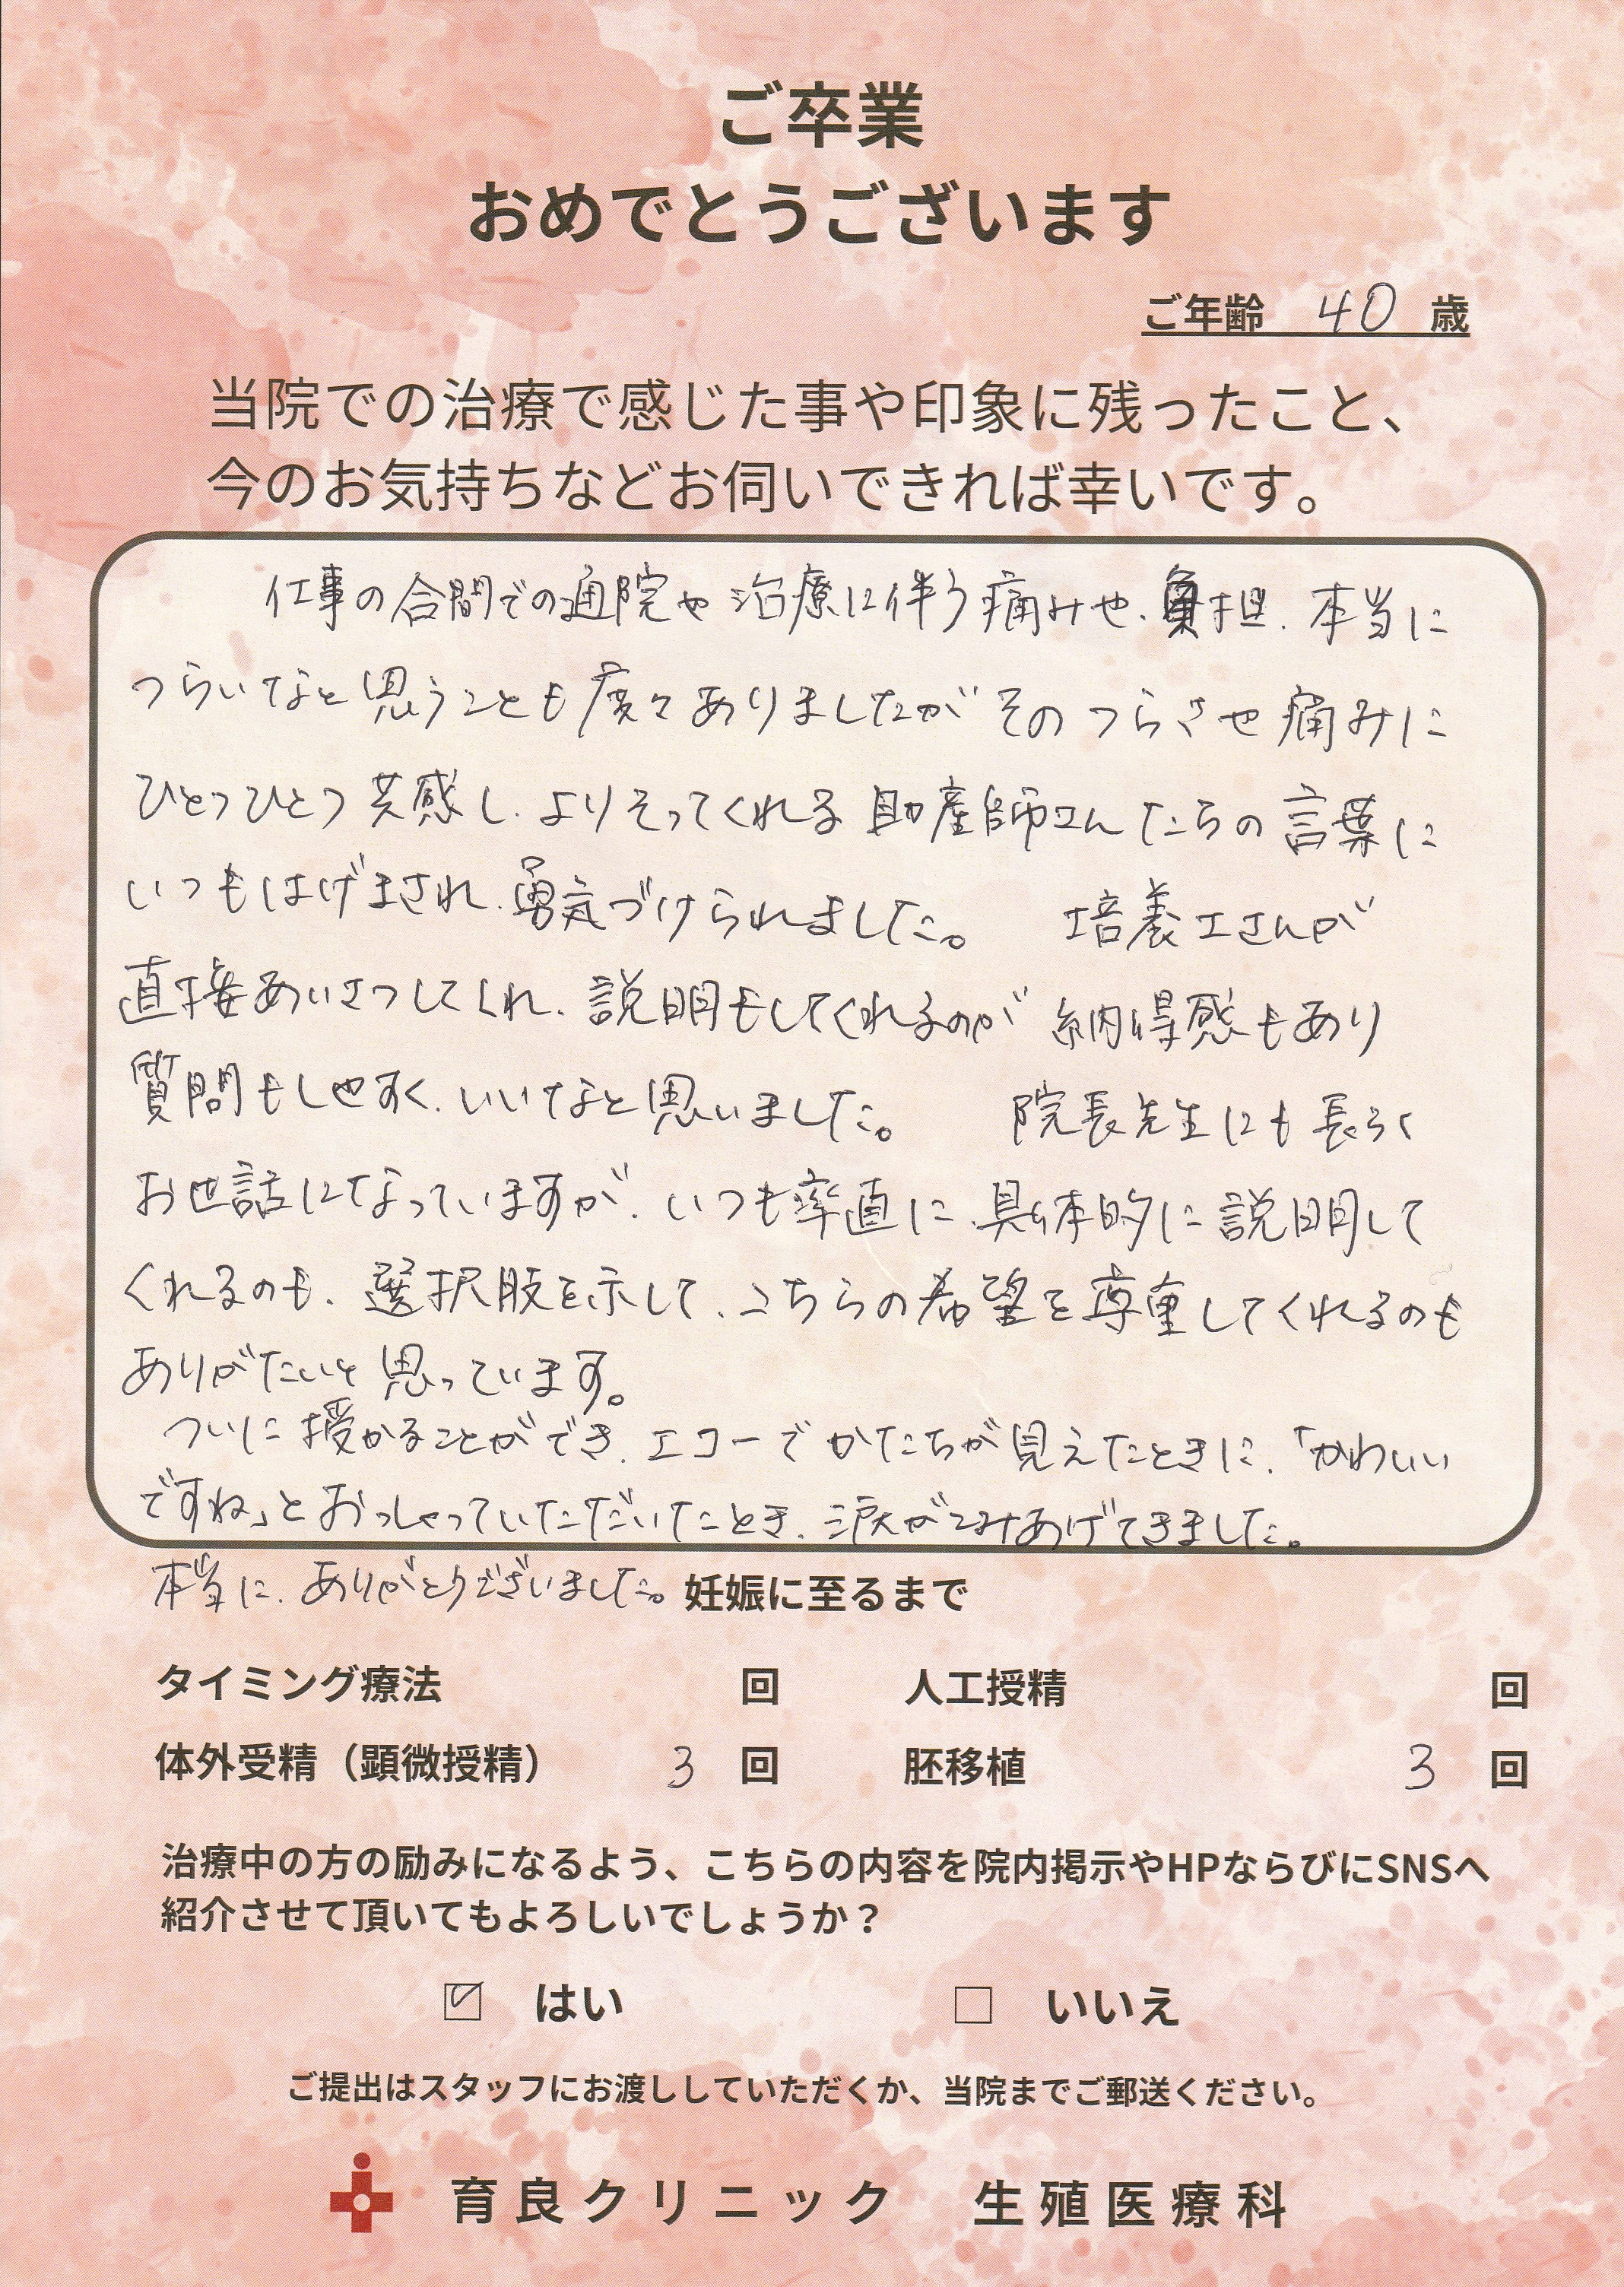 ご卒業
おめでとうございます
ご年齢 40 歳
当院での治療で感じた事や印象に残ったこと、
今のお気持ちなどお伺いできれば幸いです。
仕事の合間での通院や治療に伴う痛みや、負担、本当に
つらいなと思うことも度々ありましたが そのつらさや痛みに
ひとつひとつ共感し、よりそってくれる助産師さんたちの言葉に
いつもはげまされ、勇気づけられました。 培養士さんが
直接あいさつしてくれ、説明もしてくれるのが 納得感もあり
質問もしやすく、いいなと思いました。 院長先生にも長らく
お世話になっていますが、いつも率直に、具体的に説明して
くれるのも、選択肢を示して、こちらの希望を尊重してくれるのも
ありがたいと思っています。
ついに授かることができ、エコーでかたちが見えたときに、「かわいい
ですね」とおっしゃっていただいたとき、涙がこみあげてきました。
本当に、ありがとうございました。 妊娠に至るまで
タイミング療法 回 人工授精 回
体外受精（顕微授精） 3 回 胚移植 3 回
治療中の方の励みになるよう、こちらの内容を院内掲示やHPならびにSNSへ
紹介させて頂いてもよろしいでしょうか？
☑ はい □ いいえ
ご提出はスタッフにお渡ししていただくか、当院までご郵送ください。
育良クリニック 生殖医療科